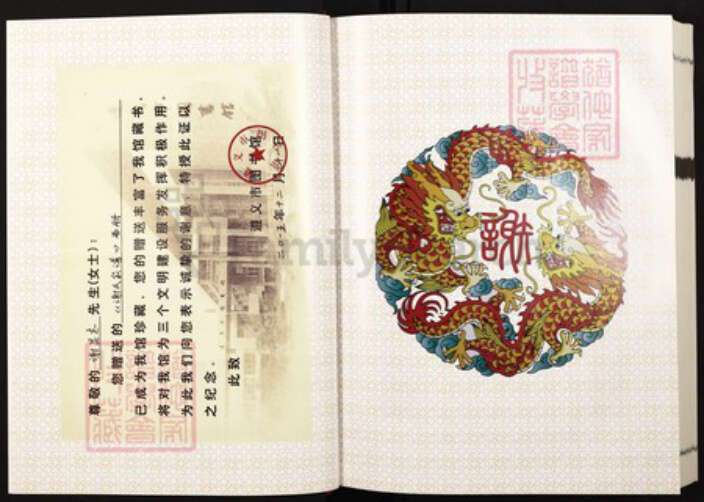 尊敬的 谢 先生(女士)：
您赠送的《谢氏
已成为我馆珍藏，您的赠送丰富了我馆藏书，
将对我馆为三个文明建设服务发挥积极作用，
为此我们向您表示诚挚的谢意，特授此证以
之纪念。
此致
遵义市图书馆
二〇〇五年十二月 日
謝